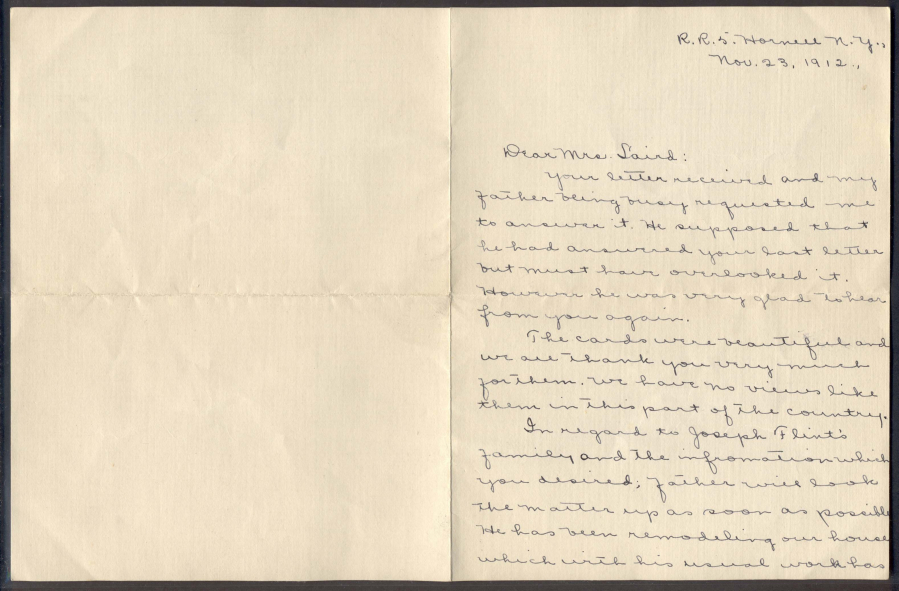 R.R.5. Hornell N.Y.,
Nov. 23, 1912.,
Dear Mrs. Laird:
Your letter received and my
father being busy requested me
to answer it. He supposed that
he had answered your last letter
but must have overlooked it.
However he was very glad to hear
from you again.
The cards were beautiful and
we all thank you very much
for them. We have no views like
them in this part of the country.
In regard to Joseph Flint's
family and the infromation which
you desired; father will look
the matter up as soon as possible
He has been remodeling our house
which with his usual work has